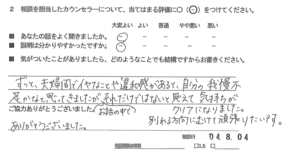 2 相談を担当したカウンセラーについて、当てはまる評価に○(⊖)をつけてください。
大変よい よい 普通 やや悪い 悪い
■ あなたの話をよく聞きましたか。
■ 説明は分かりやすかったですか。
■ 気がついたことがありましたら、どのようなことでも結構ですからお書きください。
ずっと、夫婦間でイヤなことや違和感があると、自分の我慢不
足かなと思ってきましたが、それだけではないと思えて気持ちが
ご協力ありがとうございました。
クリアになりました。
別れる方向にむけて頑張りたいです。
ありがとうございました。
'04.8.04